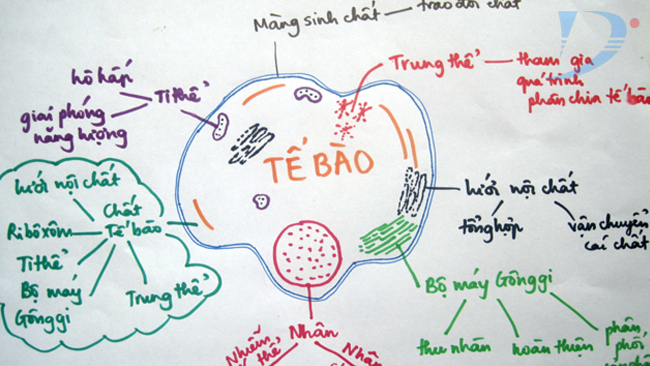 Màng sinh chất
trao đổi chất
Trung thể
tham gia
quá trình
phân chia tế bào
hô hấp
Ti thể
giải phóng
năng lượng
TẾ BÀO
lưới nội chất
Chất
Tế bào
Ribôxôm
Ti thể
Bộ máy
Gônggi
Trung thể
lưới nội chất
tổng hợp
vận chuyển
các chất
Bộ máy Gônggi
thu nhân
hoàn thiện
phân
phối
Nhân
Nhiễm
thể
Nhân